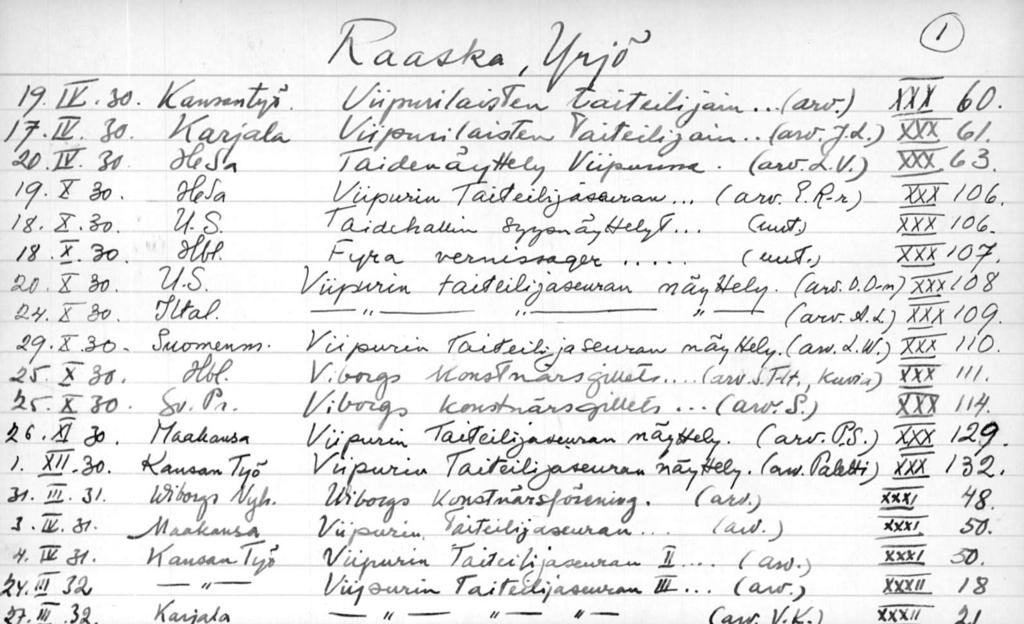 1
Raaska, Yrjö
19. IV. 30. Kansantyö. Viipurilaisten taiteilijain... (arv.) XXX 60.
17. IV. 30. Karjala Viipurilaisten Taiteilijain... (arv. J.L.) XXX 61.
20 IV. 30. HeSa Taidenäyttely Viipurissa. (arv. L.V.) XXX 63.
19. X 30. HeSa Viipurin Taiteilijaseuran... (arv. E.R-r) XXX 106.
18. X. 30. U.S. Taidehallin syysnäyttelyt... (uut.) XXX 106.
18. X. 30. Hbl. Fyra vernissager ..... (uut.) XXX 107.
20. X 30. U.S. Viipurin taiteilijaseuran näyttely. (arv. O.O-n) XXX 108
24. X 30. Iltal. — " — " — " — (arv. A.L) XXX 109.
29. X. 30. Suomenm. Viipurin Taiteilijaseuran näyttely. (arv. L.W.) XXX 110.
25. X 30. Hbl. Viborgs Konstnärsgillets.... (arv. S.T-lt., kuvia) XXX 111.
25. X 30. Sv. Pr. Viborgs konstnärsgillets ... (arv. S.) XXX 114.
26. XI 30. Maakansa Viipurin Taiteilijaseuran näyttely. (arv. P.S.) XXX 129.
1. XII. 30. Kansan Työ Viipurin Taiteilijaseuran näyttely. (arv. Paletti) XXX 132.
31. III. 31. Wiborgs Nyh. Wiborgs Konstnärsförening. (arv.) XXXI 48.
3. IV. 31. Maakansa Viipurin Taiteilijaseuran... (arv.) XXXI 50.
4. IV 31. Kansan Työ Viipurin Taiteilijaseuran II.... (arv.) XXXI 50.
24. III 32 — " — Viipurin Taiteilijaseuran III... (arv.) XXXII 18
27. III. 32. Karjala — " — " — " — (arv. V.K.) XXXII 21